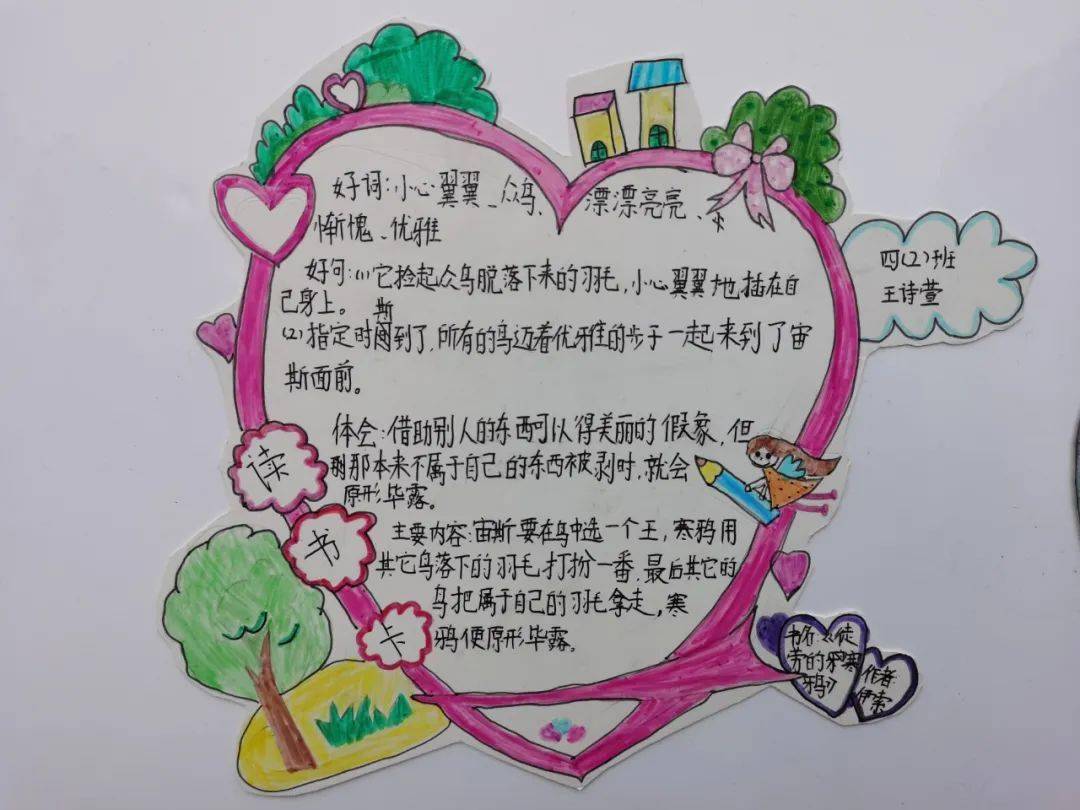 好词:小心翼翼、众鸟、漂漂亮亮、
惭愧、优雅
四(2)班
王诗萱
好句:(1)它捡起众鸟脱落下来的羽毛,小心翼翼地插在自
己身上。
(2)指定时间到了,所有的鸟迈着优雅的步子一起来到了宙
斯面前。
体会:借助别人的东西可以得美丽的假象,但
那本来不属于自己的东西被剥时,就会
原形毕露。
主要内容:宙斯要在鸟中选一个王,寒鸦用
其它鸟落下的羽毛打扮一番,最后其它的
鸟把属于自己的羽毛拿走,寒
鸦便原形毕露。
读
书
卡
书名:《徒
劳的寒
鸦》
作者
伊索